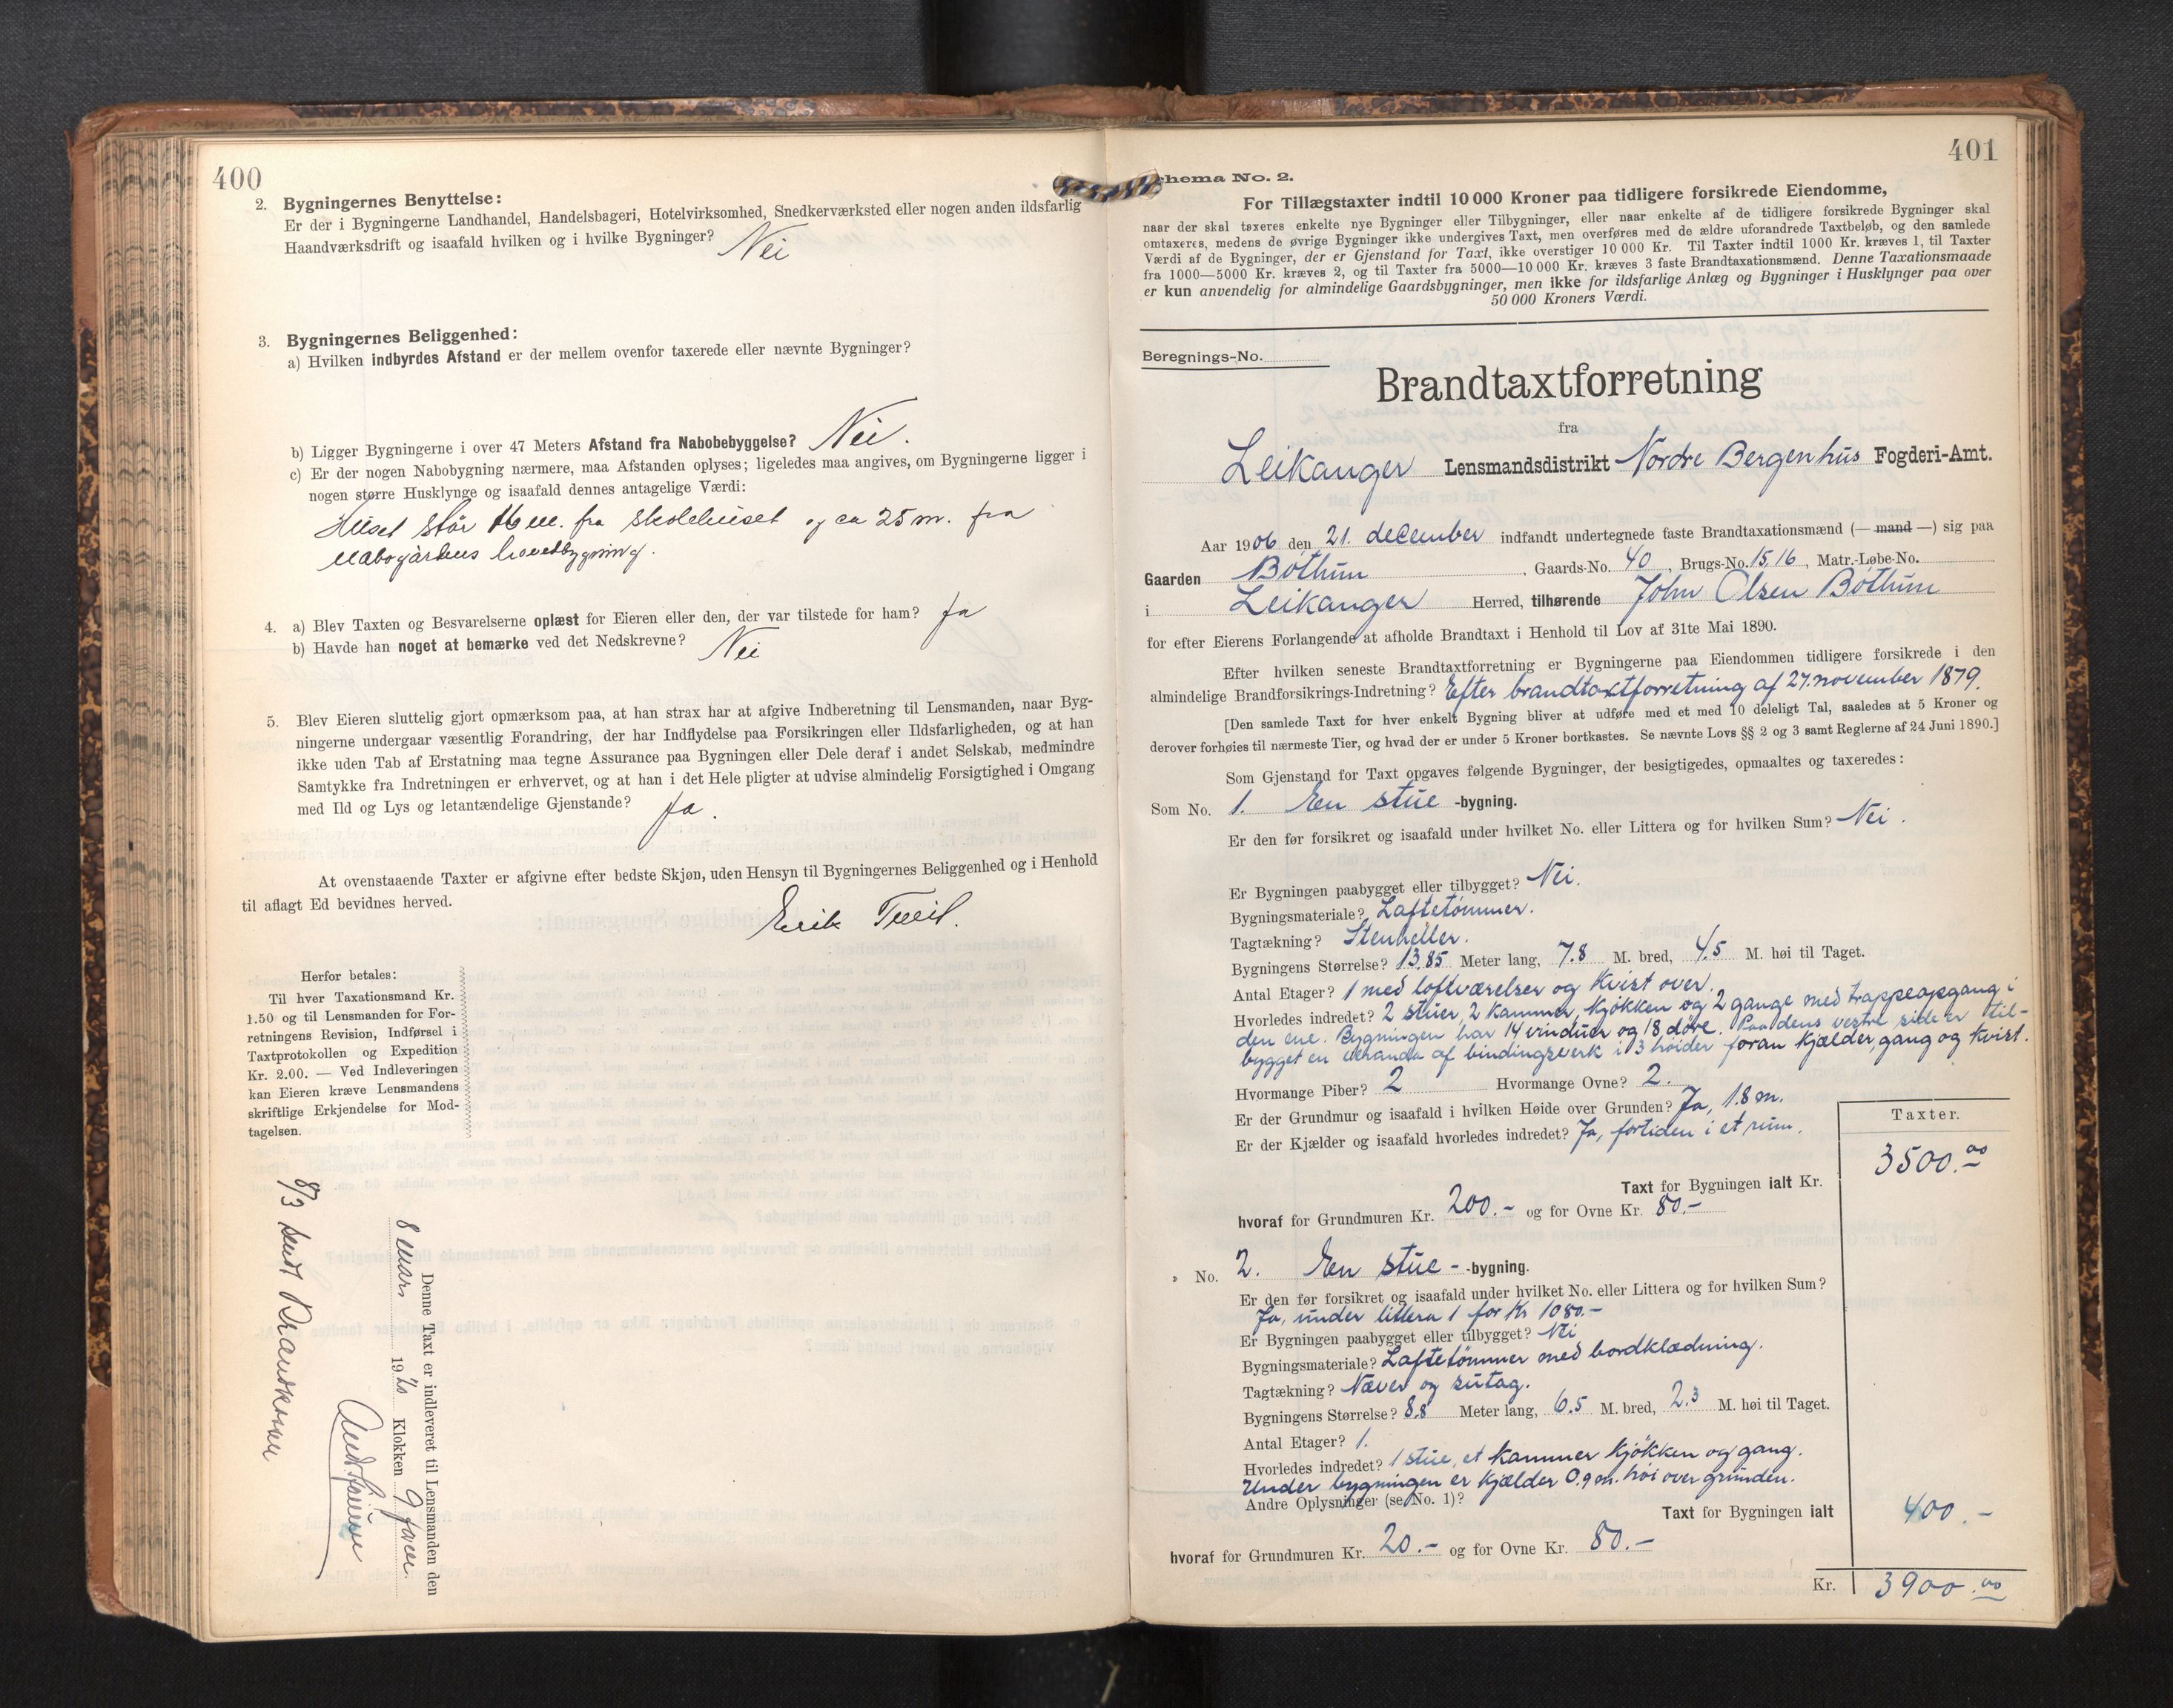 400
2. Bygningernes Benyttelse:
Er der i Bygningerne Landhandel, Handelsbageri, Hotelvirksomhed, Snedkerværksted eller nogen anden ildsfarlig
Haandværksdrift og isaafald hvilken og i hvilke Bygninger? Nei
3. Bygningernes Beliggenhed:
a) Hvilken indbyrdes Afstand er der mellem ovenfor taxerede eller nævnte Bygninger?
b) Ligger Bygningerne i over 47 Meters Afstand fra Nabobebyggelse? Nei.
c) Er der nogen Nabobygning nærmere, maa Afstanden oplyses; ligeledes maa angives, om Bygningerne ligger i
nogen større Husklynge og isaafald dennes antagelige Værdi:
Huset står 16 m. fra skolehuset og ca 25 m. fra
nabogårdens hovedbygning.
4. a) Blev Taxten og Besvarelserne oplæst for Eieren eller den, der var tilstede for ham? Ja
b) Havde han noget at bemærke ved det Nedskrevne? Nei
5. Blev Eieren sluttelig gjort opmærksom paa, at han strax har at afgive Indberetning til Lensmanden, naar Byg-
ningerne undergaar væsentlig Forandring, der har Indflydelse paa Forsikringen eller Ildsfarligheden, og at han
ikke uden Tab af Erstatning maa tegne Assurance paa Bygningen eller Dele deraf i andet Selskab, medmindre
Samtykke fra Indretningen er erhvervet, og at han i det Hele pligter at udvise almindelig Forsigtighed i Omgang
med Ild og Lys og letantændelige Gjenstande? Ja.
At ovenstaaende Taxter er afgivne efter bedste Skjøn, uden Hensyn til Bygningernes Beliggenhed og i Henhold
til aflagt Ed bevidnes herved.
Erik
Herfor betales:
Til hver Taxationsmand Kr.
1.50 og til Lensmanden for For-
retningens Revision, Indførsel i
Taxtprotokollen og Expedition
Kr. 2.00. — Ved Indleveringen
kan Eieren kræve Lensmandens
skriftlige Erkjendelse for Mod-
tagelsen.
Denne Taxt er indleveret til Lensmanden den
8 mars 1910 Klokken 9 form.
8/3 sendt Brandkassen
401
chema No. 2.
For Tillægstaxter indtil 10 000 Kroner paa tidligere forsikrede Eiendomme,
naar der skal taxeres enkelte nye Bygninger eller Tilbygninger, eller naar enkelte af de tidligere forsikrede Bygninger skal
omtaxeres, medens de øvrige Bygninger ikke undergives Taxt, men overføres med de ældre uforandrede Taxtbeløb, og den samlede
Værdi af de Bygninger, der er Gjenstand for Taxt, ikke overstiger 10 000 Kr. Til Taxter indtil 1000 Kr. kræves 1, til Taxter
fra 1000—5000 Kr. kræves 2, og til Taxter fra 5000—10 000 Kr. kræves 3 faste Brandtaxationsmænd. Denne Taxationsmaade
er kun anvendelig for almindelige Gaardsbygninger, men ikke for ildsfarlige Anlæg og Bygninger i Husklynger paa over
50 000 Kroners Værdi.
Beregnings-No.
Brandtaxtforretning
fra
Leikanger Lensmandsdistrikt Nordre Bergenhus Fogderi-Amt.
Aar 1906 den 21. december indfandt undertegnede faste Brandtaxationsmænd (— mand —) sig paa
Gaarden Bøthun, Gaards-No. 40, Brugs-No. 15, 16, Matr.-Løbe-No.
i Leikanger Herred, tilhørende John Olsen Bøthun
for efter Eierens Forlangende at afholde Brandtaxt i Henhold til Lov af 31te Mai 1890.
Efter hvilken seneste Brandtaxtforretning er Bygningerne paa Eiendommen tidligere forsikrede i den
almindelige Brandforsikrings-Indretning? Efter brandtaxtforretning af 27. november 1879.
[Den samlede Taxt for hver enkelt Bygning bliver at udføre med et med 10 deleligt Tal, saaledes at 5 Kroner og
derover forhøies til nærmeste Tier, og hvad der er under 5 Kroner bortkastes. Se nævnte Lovs §§ 2 og 3 samt Reglerne af 24 Juni 1890.]
Som Gjenstand for Taxt opgaves følgende Bygninger, der besigtigedes, opmaaltes og taxeredes:
Som No. 1. En stue -bygning.
Er den før forsikret og isaafald under hvilket No. eller Littera og for hvilken Sum? Nei.
Er Bygningen paabygget eller tilbygget? Nei.
Bygningsmateriale? Laftetømmer.
Tagtækning? Stenheller.
Bygningens Størrelse? 13.85 Meter lang, 7.8 M. bred, 4.5 M. høi til Taget.
Antal Etager? 1 med loftværelser og kvist over.
Hvorledes indredet? 2 stuer, 2 kammer, kjøkken og 2 gange med trappeopgang i
den ene. Bygningen har 14 vinduer og 18 døre. Paa dens vestre side er til-
bygget en veranda af bindingsverk i 3 høider foran kjælder, gang og kvist.
Hvormange Piber? 2 Hvormange Ovne? 2.
Er der Grundmur og isaafald i hvilken Høide over Grunden? Ja, 1.8 m.
Er der Kjælder og isaafald hvorledes indredet? Ja, fortiden i et rum.
Taxter.
Taxt for Bygningen ialt Kr. 3500.00
hvoraf for Grundmuren Kr. 200.- og for Ovne Kr. 80.-
" No. 2. En stue- -bygning.
Er den før forsikret og isaafald under hvilket No. eller Littera og for hvilken Sum?
Ja, under littera 1 for Kr 1080.-
Er Bygningen paabygget eller tilbygget? Nei
Bygningsmateriale? Laftetømmer med bordklædning.
Tagtækning? Næver og sutag.
Bygningens Størrelse? 8.8 Meter lang, 6.5 M. bred, 2.3 M. høi til Taget.
Antal Etager? 1.
Hvorledes indredet? 1 stue, et kammer kjøkken og gang.
Under bygningen er kjælder 0.9 m. høi over grunden.
Andre Oplysninger (se No. 1)?
Taxt for Bygningen ialt 400.-
hvoraf for Grundmuren Kr. 20.- og for Ovne Kr. 80.-
Kr. 3900.00